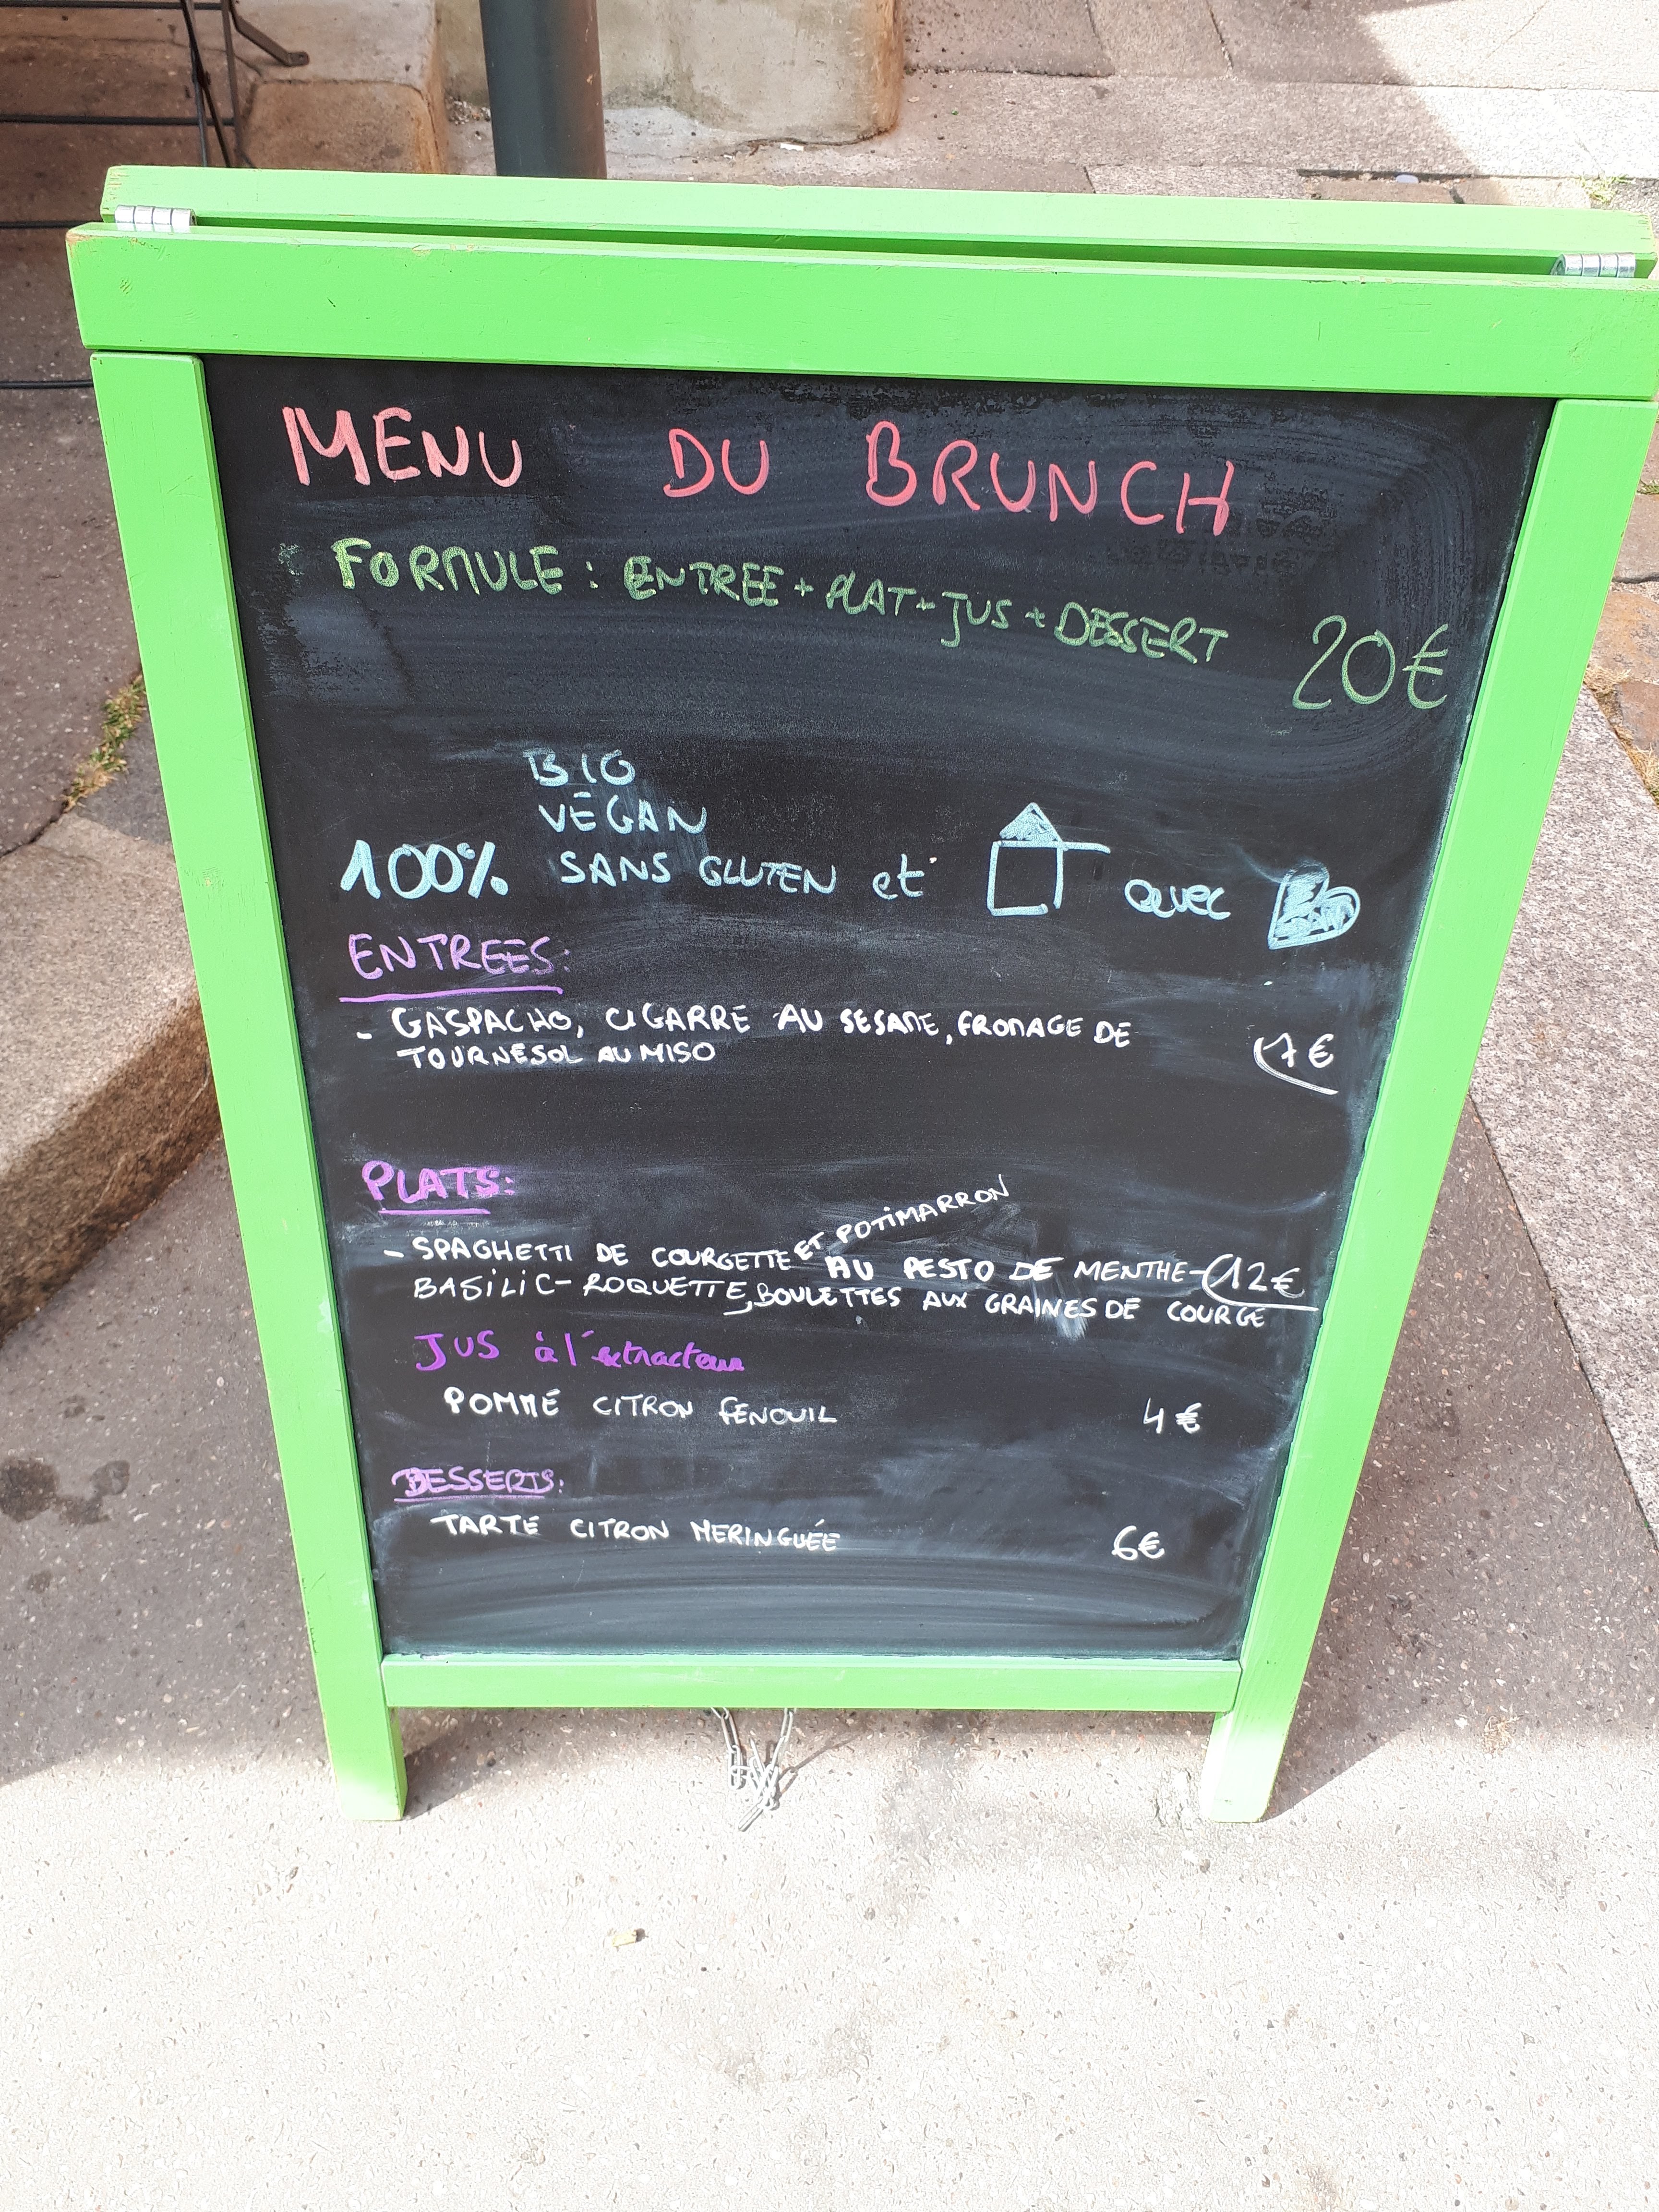 MENU DU BRUNCH
FORMULE : ENTREE + PLAT + JUS + DESSERT 20€
BIO
VEGAN
100% SANS GLUTEN et avec
ENTREES:
- GASPACHO, CIGARRE AU SESAME, FROMAGE DE
TOURNESOL AU MISO 7€
PLATS:
- SPAGHETTI DE COURGETTE ET POTIMARRON AU PESTO DE MENTHE- 12€
BASILIC-ROQUETTE, BOULETTES AUX GRAINES DE COURGE
JUS à l'extracteur
POMME CITRON FENOUIL 4€
DESSERTS:
TARTE CITRON MERINGUÉE 6€